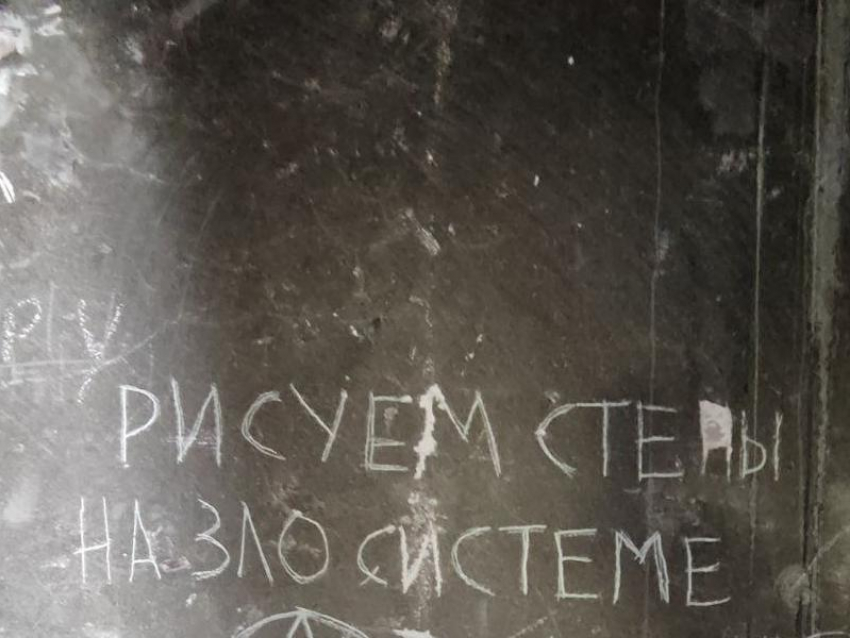 РИСУЕМ СТЕНЫ
НА ЗЛО СИСТЕМЕ